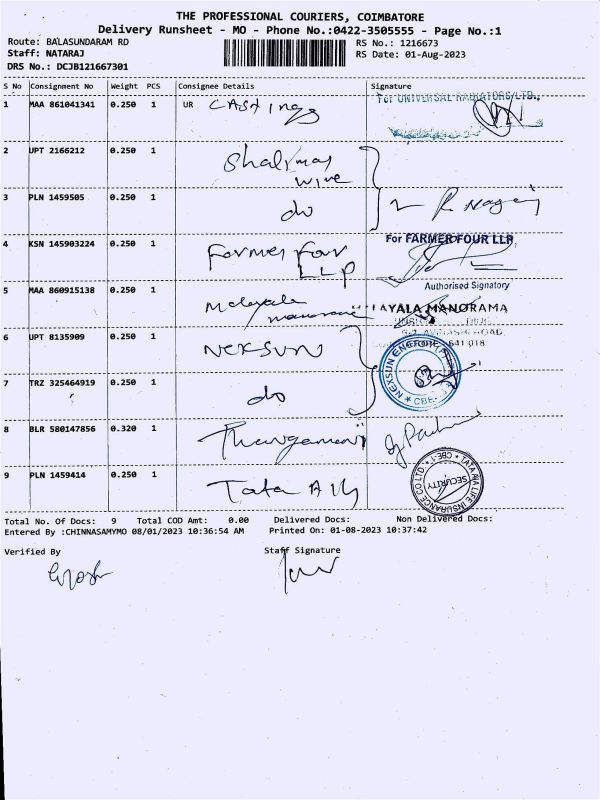 THE PROFESSIONAL COURIERS, COIMBATORE
Delivery Runsheet - MO - Phone No.:0422-3505555 - Page No.:1
Route: BALASUNDARAM RD
RS No.: 1216673
Staff: NATARAJ
RS Date: 01-Aug-2023
DRS No.: DCJB121667301
S No Consignment No Weight PCS Consignee Details Signature
1 MAA 861041341 0.250 1 UR Castings For UNIVERSAL RADIATORS LTD.,
2 UPT 2166212 0.250 1 Shalimar
wire
3 PLN 1459505 0.250 1 do
4 KSN 145903224 0.250 1 Farmer Four For FARMER FOUR LLP
LLP
Authorised Signatory
5 MAA 860915138 0.250 1 Malayala MALAYALA MANORAMA
manorama
641 018.
6 UPT 8135909 0.250 1 NEXSUN
7 TRZ 325464919 0.250 1 do
★ CBE
8 BLR 580147856 0.320 1
9 PLN 1459414 0.250 1 Tata AIG
TATA AIA LIFE INSURANCE CO LTD ★ CBE-1 ★
SECURITY
Total No. Of Docs: 9 Total COD Amt: 0.00 Delivered Docs: Non Delivered Docs:
Entered By :CHINNASAMYMO 08/01/2023 10:36:54 AM Printed On: 01-08-2023 10:37:42
Verified By Staff Signature